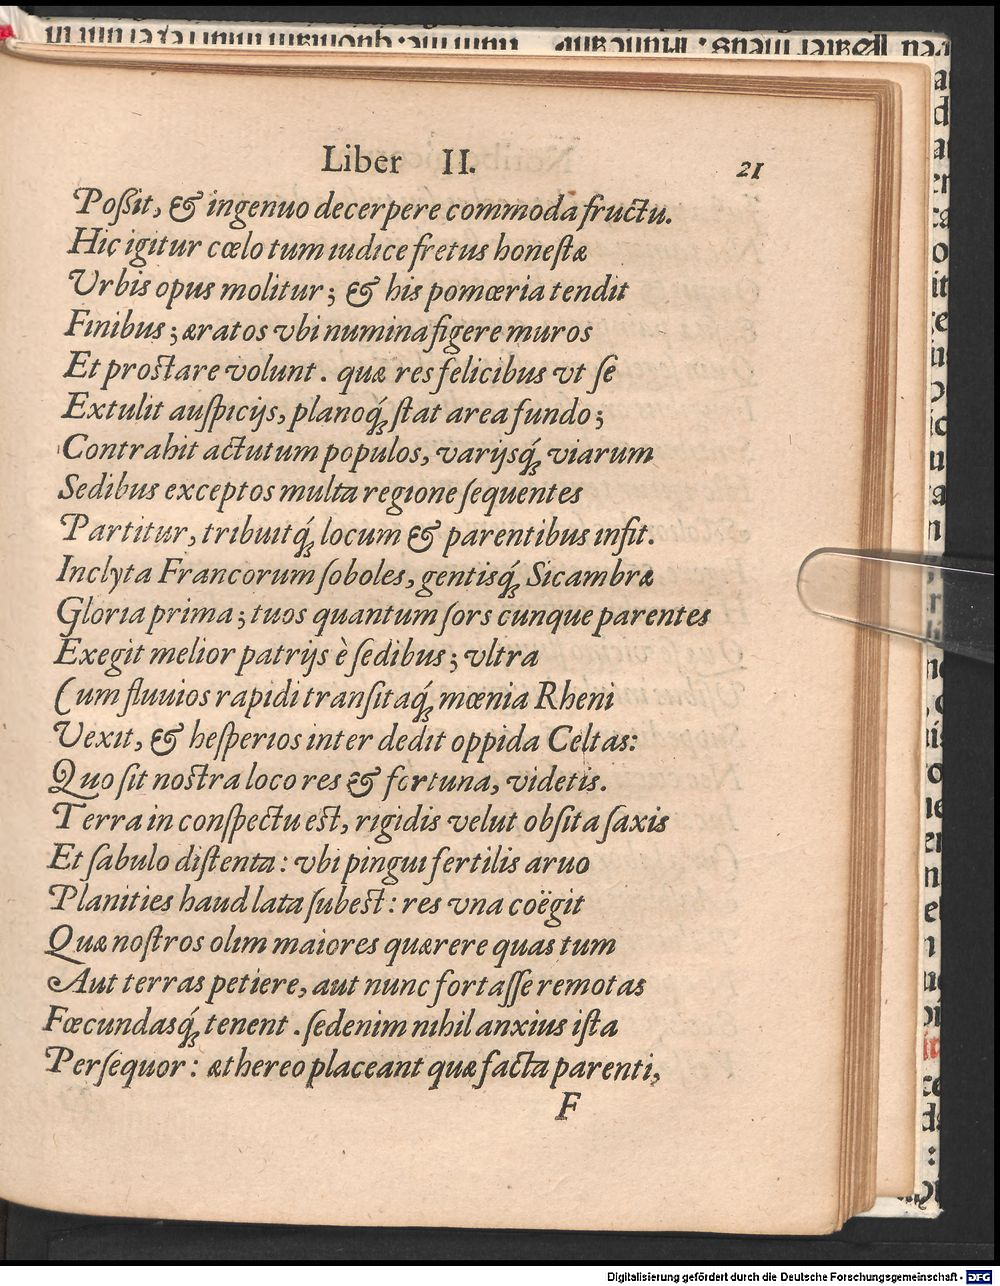 Liber II. 21
Poßit, & ingenuo decerpere commoda fructu.
Hic igitur cœlo tum iudice fretus honeſtæ
Vrbis opus molitur; & his pomœria tendit
Finibus; æratos vbi numina figere muros
Et proſtare volunt. quæ res felicibus vt ſe
Extulit auſpicijs, planoq́ꝫ ſtat area fundo;
Contrahit actutum populos, varijsq́ꝫ viarum
Sedibus exceptos multa regione ſequentes
Partitur, tribuitq́ꝫ locum & parentibus infit.
Inclyta Francorum ſoboles, gentisq́ꝫ Sicambræ
Gloria prima; tuos quantum ſors cunque parentes
Exegit melior patrijs è ſedibus; vltra
Cum fluuios rapidi tranſitaq́ꝫ mœnia Rheni
Vexit, & heſperios inter dedit oppida Celtas:
Quo ſit noſtra loco res & fortuna, videtis.
Terra in conſpectu eſt, rigidis velut obſita ſaxis
Et ſabulo diſtenta: vbi pingui fertilis aruo
Planities haud lata ſubeſt: res vna coëgit
Quæ noſtros olim maiores quærere quas tum
Aut terras petiere, aut nunc fortaſſe remotas
Fœcundasq́ꝫ tenent. ſedenim nihil anxius iſta
Perſequor: æthereo placeant quæ facta parenti,
F
Digitalisierung gefördert durch die Deutsche Forschungsgemeinschaft - DFG